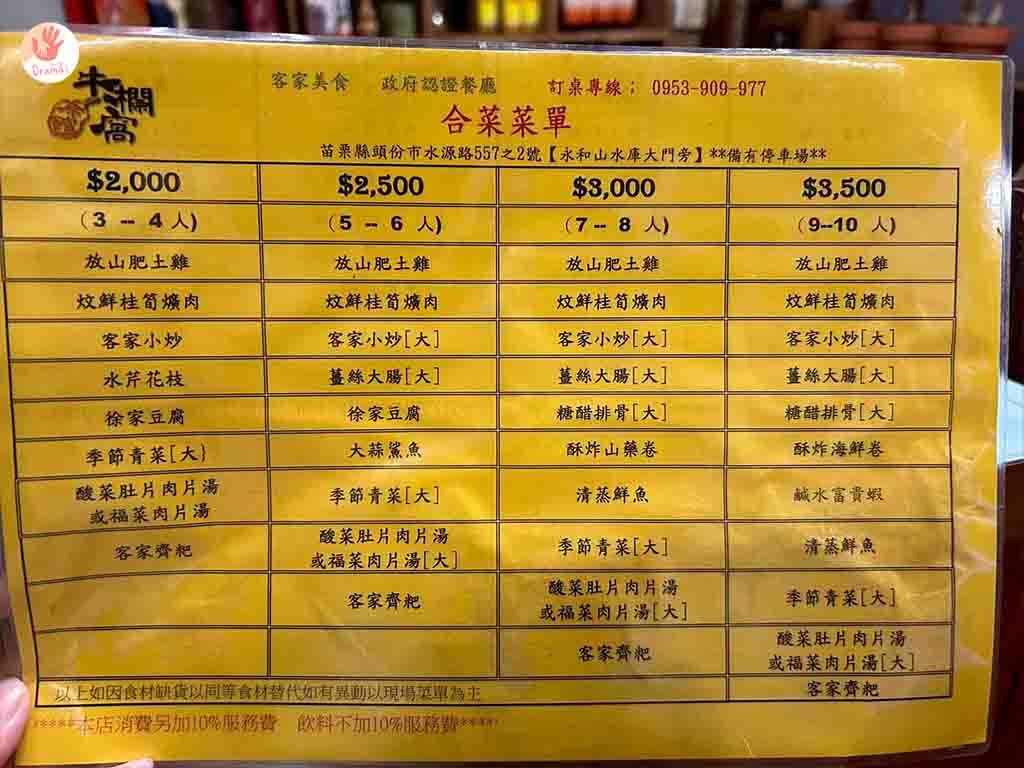 Drama
牛欄窩
客家美食 政府認證餐廳 訂桌專線； 0953-909-977
合菜菜單
苗栗縣頭份市水源路557之2號【永和山水庫大門旁】**備有停車場**
$2,000 $2,500 $3,000 $3,500
(3 -- 4 人) (5 -- 6 人) (7-- 8 人) (9--10 人)
放山肥土雞 放山肥土雞 放山肥土雞 放山肥土雞
炆鮮桂筍爌肉 炆鮮桂筍爌肉 炆鮮桂筍爌肉 炆鮮桂筍爌肉
客家小炒 客家小炒[大] 客家小炒[大] 客家小炒[大]
水芹花枝 薑絲大腸[大] 薑絲大腸[大] 薑絲大腸[大]
徐家豆腐 徐家豆腐 糖醋排骨[大] 糖醋排骨[大]
季節青菜[大} 大蒜鯊魚 酥炸山藥卷 酥炸海鮮卷
酸菜肚片肉片湯
或福菜肉片湯 季節青菜[大] 清蒸鮮魚 鹹水富貴蝦
客家齊粑 酸菜肚片肉片湯
或福菜肉片湯[大] 季節青菜[大] 清蒸鮮魚
客家齊粑 酸菜肚片肉片湯
或福菜肉片湯[大] 季節青菜[大]
客家齊粑 酸菜肚片肉片湯
或福菜肉片湯[大]
以上如因食材缺貨以同等食材替代如有異動以現場菜單為主 客家齊粑
*****本店消費另加10%服務費 飲料不加10%服務費*****